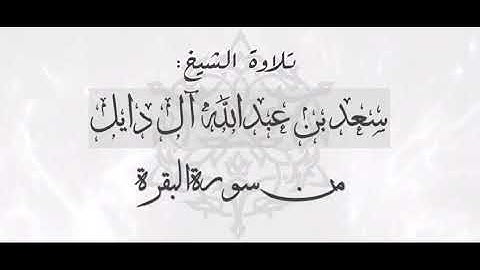 تلاوة الشيخ:
سعد بن عبدالله آل دايل
من سورة البقرة